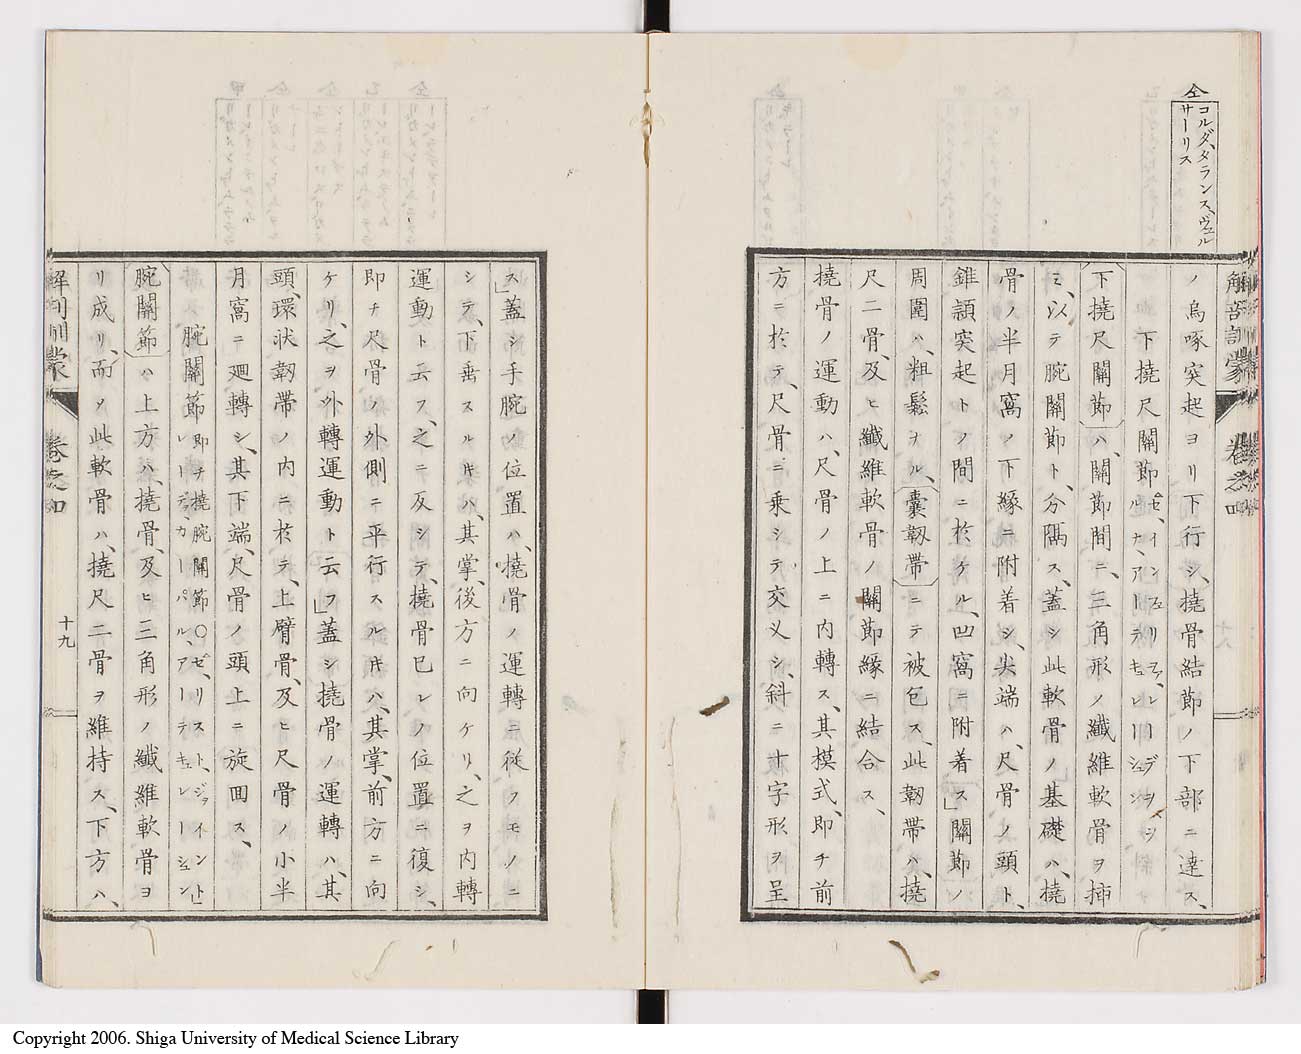 仝
コルダ、タランス、ヴェル
サーリス
解剖訓蒙　卷之四
ノ烏啄突起ヨリ下行シ、撓骨結節ノ下部ニ達ス、
下撓尺關節ゼ、インフェリヲル、レーヂヲ、アルナ、アーテキュレーシュン
下撓尺關節ハ、關節間ニ、三角形ノ纖維軟骨ヲ挿
ミ、以テ腕關節ト、分隔ス、蓋シ此軟骨ノ基礎ハ、撓
骨ノ半月窩ノ下緣ニ附着シ、尖端ハ、尺骨ノ頭ト、
錐頴突起トノ間ニ於ケル、凹窩ニ附着ス」關節ノ
周圍ハ、粗鬆ナル、嚢韌帶ニテ被包ス、此韌帶ハ、撓
尺二骨、及ヒ纖維軟骨ノ關節緣ニ結合ス、
撓骨ノ運動ハ、尺骨ノ上ニ内轉ス、其模式、即チ前
方ニ於テ、尺骨ニ乘シテ交叉シ、斜ニ十字形ヲ呈
ス」蓋シ手腕ノ位置ハ、撓骨ノ運轉ニ從フモノニ
シテ、下垂スルキハ、其掌、後方ニ向ケリ、之ヲ内轉
運動ト云フ、之ニ反シテ、撓骨已レノ位置ニ復シ、
即チ尺骨ノ外側ニ平行スルキハ、其掌、前方ニ向
ケリ、之ヲ外轉運動ト云フ」蓋シ撓骨ノ運轉ハ、其
頭、環狀韌帶ノ内ニ於テ、上臂骨、及ヒ尺骨ノ小半
月窩ニ廻轉シ、其下端、尺骨ノ頭上ニ旋回ス、
腕關節即チ撓腕關節〇ゼ、リスト、ジョイント」レーヂヲ、カーパル、アーテキュレーシュン
腕關節ハ上方ハ、撓骨、及ヒ三角形ノ纖維軟骨ヨ
リ成リ、而〆此軟骨ハ、撓尺二骨ヲ維持ス、下方ハ、
解剖訓蒙　卷之四　十九
Copyright 2006. Shiga University of Medical Science Library